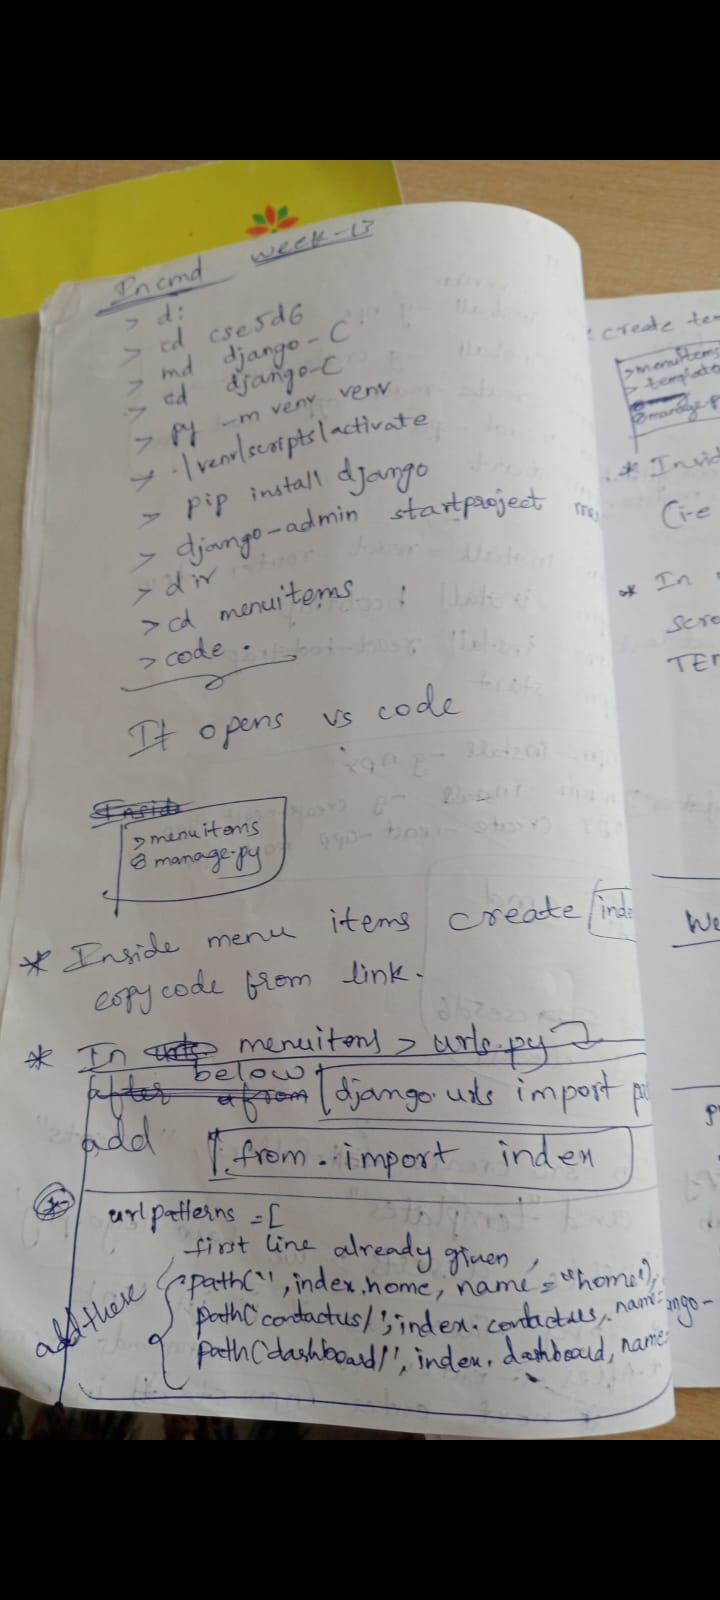 In cmd week-13
> d:
> cd cse5d6
> md django-C
> cd django-C
> py -m venv venv
> .\venv\scripts\activate
> pip install django
> django-admin startproject
> dir
> cd menuitems
> code .
It opens vs code
Inside
> menuitems
manage.py
* Inside menu items create inde
copy code from link.
* In menuitems > urls.py
below
after from django.urls import
add
from . import index
* urlpatterns = [
first line already given,
add these
path('', index.home, name="home"),
path('contactus/', index.contactus, name=
path('dashboard/', index.dashboard, name=
create tem
> menuitems
> template
manage.p
* Insid
(i-e
* In
scro
TEM
We
ango-